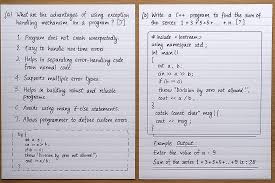 (a) What are the advantages of using exception
handling mechanism in a program? [7]
1. Program does not crash unexpectedly.
2. Easy to handle run-time error
3. Helps in separating error-handling code
from normal code.
4. Supports multiple error types.
5. Helps in building robust and reliable
programs.
6. Avoids using many if-else statements.
7. Allows programmer to define custom error
try {
int a, b;
cin >> a >> b;
if (b == 0)
throw "Division by zero not allowed!";
(b) Write a C++ program to find the sum of
the series 1 + 3 + 5 +... + n [7]
# include <iostream>
using namespace std;
int main()
{
int a, b;
cin >> a >> b;
if (b == 0)
throw "Division by zero not allowed!";
}
catch (const char* msg) {
cout << msg;
}
Example Output:
Enter the value of n : 9
Sum of the series 1 + 3 + 5 + ... + 9 is : 25